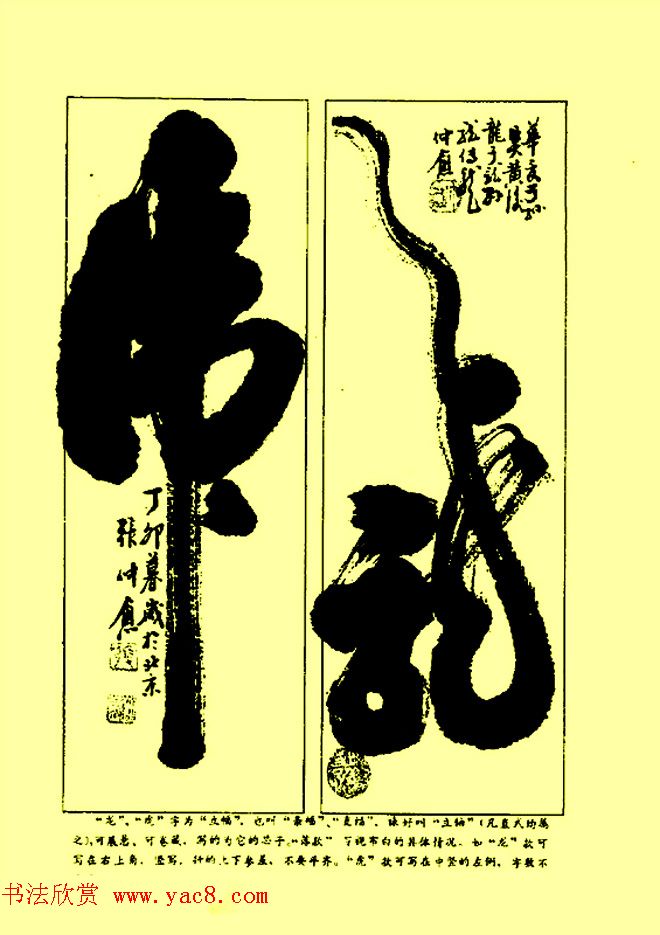 龍
華夏子孙
吴黄後
龍子龍孙
龍傳龍
仲愈
虎
丁卯暮歲於北京
張仲愈
“龙”、“虎”字为“立幅”，也叫“条幅”、“直幅”，裱好叫“立轴”（凡直式均属
之），可展悬、可卷藏，写的为它的芯子。“落款”可视布白的具体情况，如“龙”款可
写在右上角，竖写，行的上下参差，不要平齐。“虎”款可写在中竖的左侧，字数不
书法欣赏 www.yac8.com